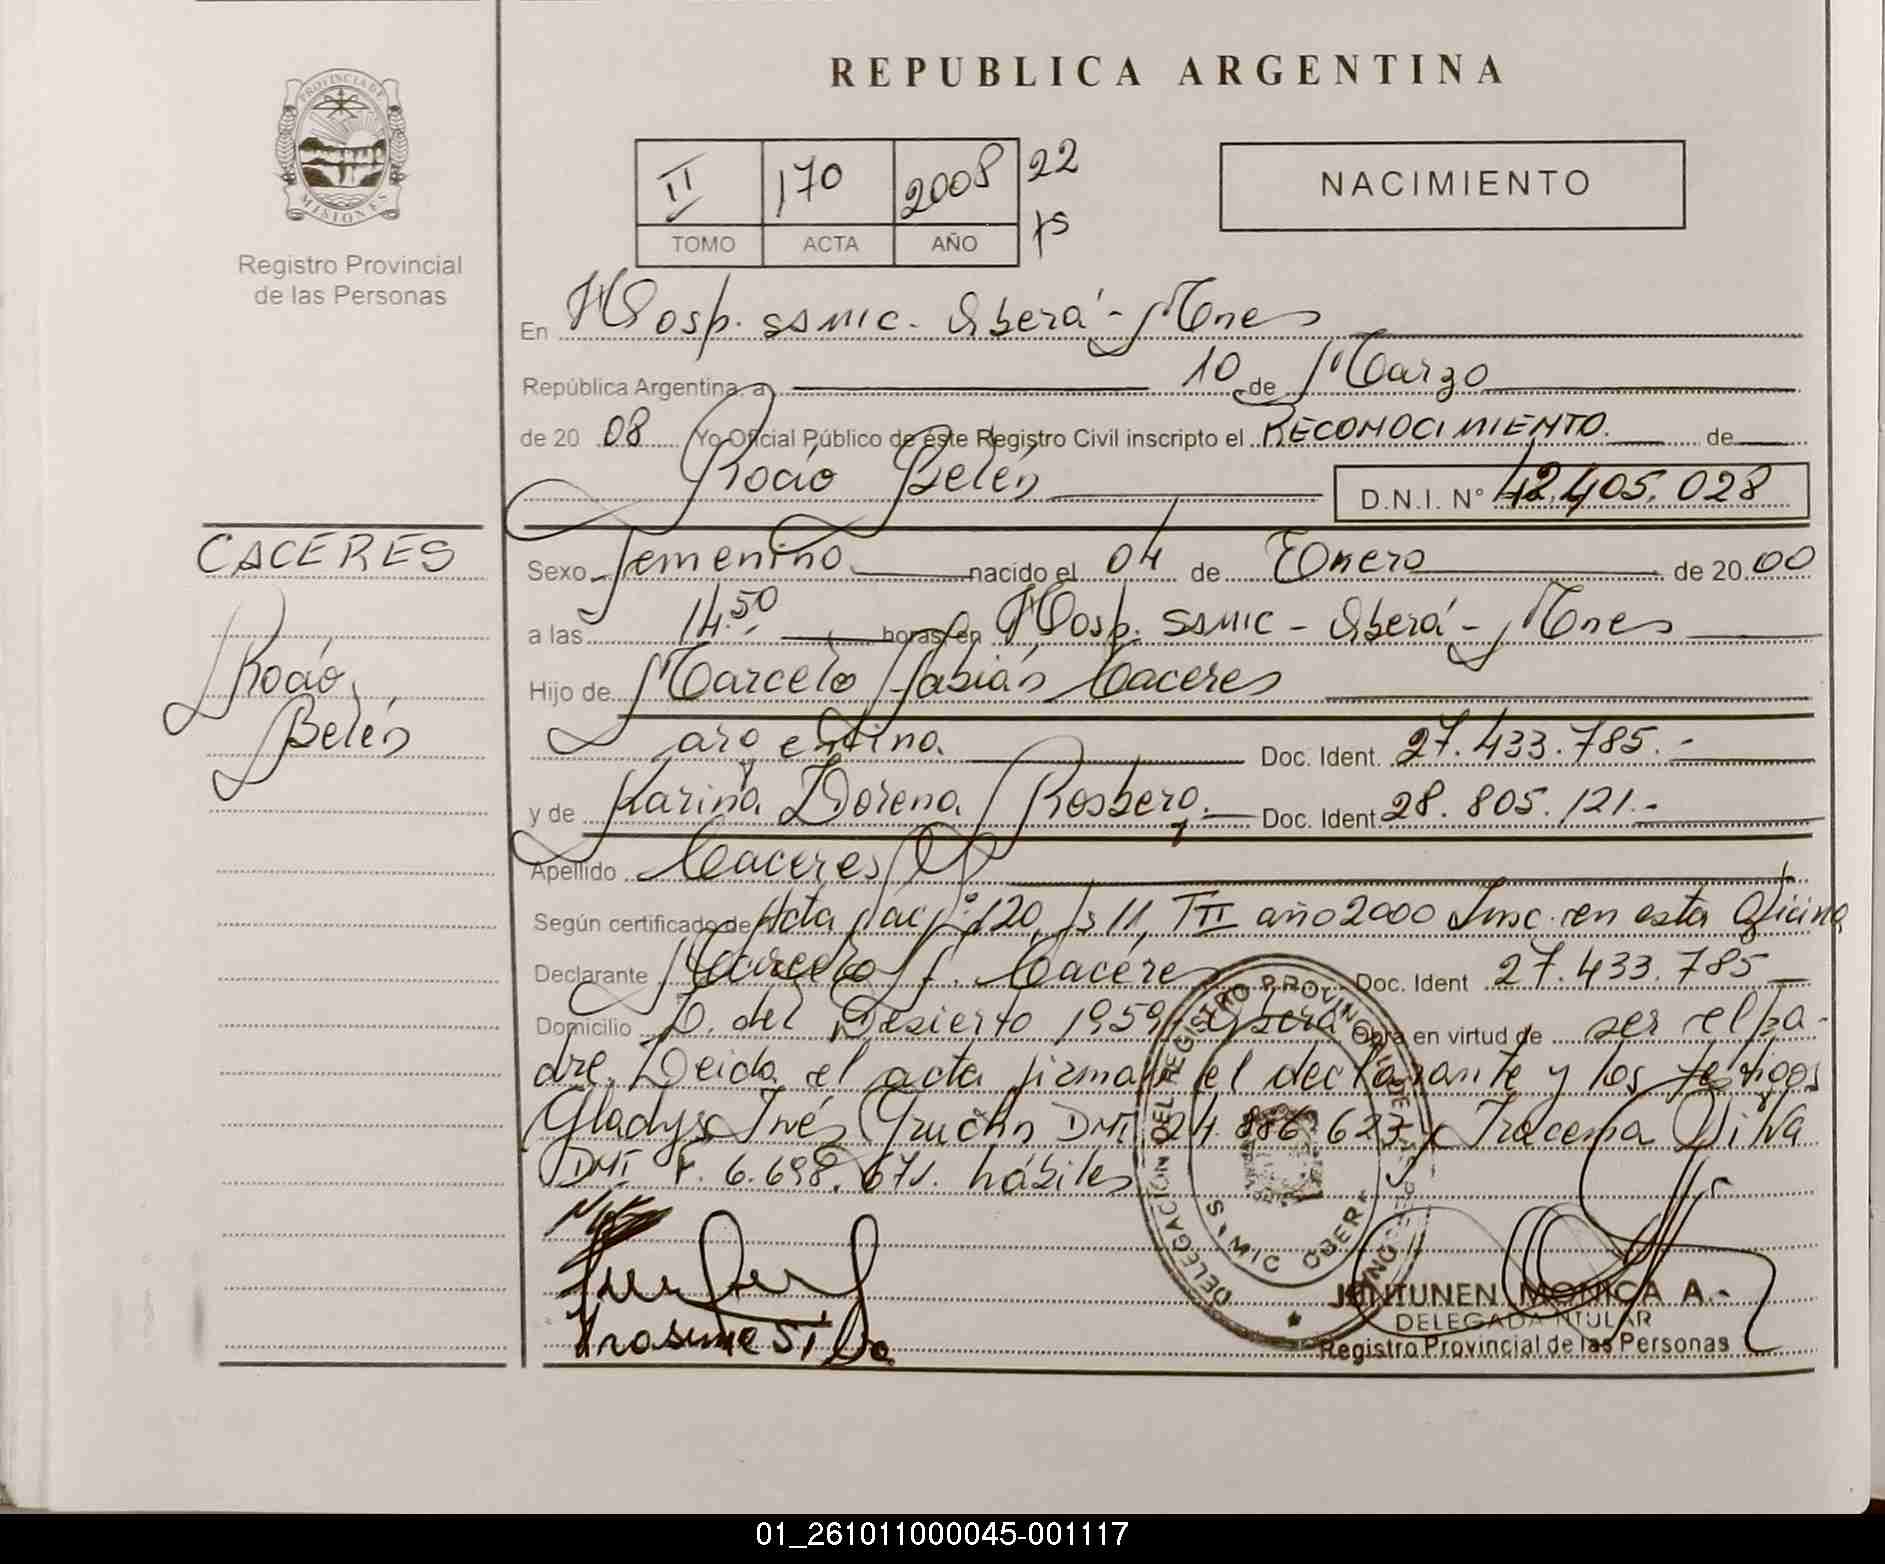 REPUBLICA ARGENTINA
PROVINCIA DE MISIONES
Registro Provincial
de las Personas
II 170 2008 22
TOMO ACTA AÑO fs
NACIMIENTO
En Hosp. SAMIC. Oberá - Mnes
República Argentina, a 10 de Marzo
de 2008 Yo Oficial Público de este Registro Civil inscripto el RECONOCIMIENTO. de
Rocío Belén D.N.I. N° 42.405.028
CACERES
Rocío
Belén
Sexo femenino nacido el 04 de Enero de 2000
a las 14.50 horas en Hosp. SAMIC - Oberá - Mnes
Hijo de Marcelo Fabián Caceres
argentino Doc. Ident. 27.433.785.-
y de Karina Lorena Doc. Ident. 28.805.121.-
Apellido Caceres
Según certificado de Acta Nac. N° 120, fs 11, TII año 2000 Insc. en esta Oficina
Declarante Marcelo F. Caceres Doc. Ident 27.433.785
Domicilio D. del Desierto 1959, Oberá Obra en virtud de ser el pa-
dre. Leida el acta firman el declarante y los testigos
Gladys Inés DNI 24.886.623 y Iracema Silva
DNI F. 6.698.671. hábiles
DELEGACIÓN DEL REGISTRO PROVINCIAL DE LAS PERSONAS
SAMIC OBERA
JUNTUNEN MONICA A.-
DELEGADA TITULAR
Registro Provincial de las Personas
01_261011000045-001117